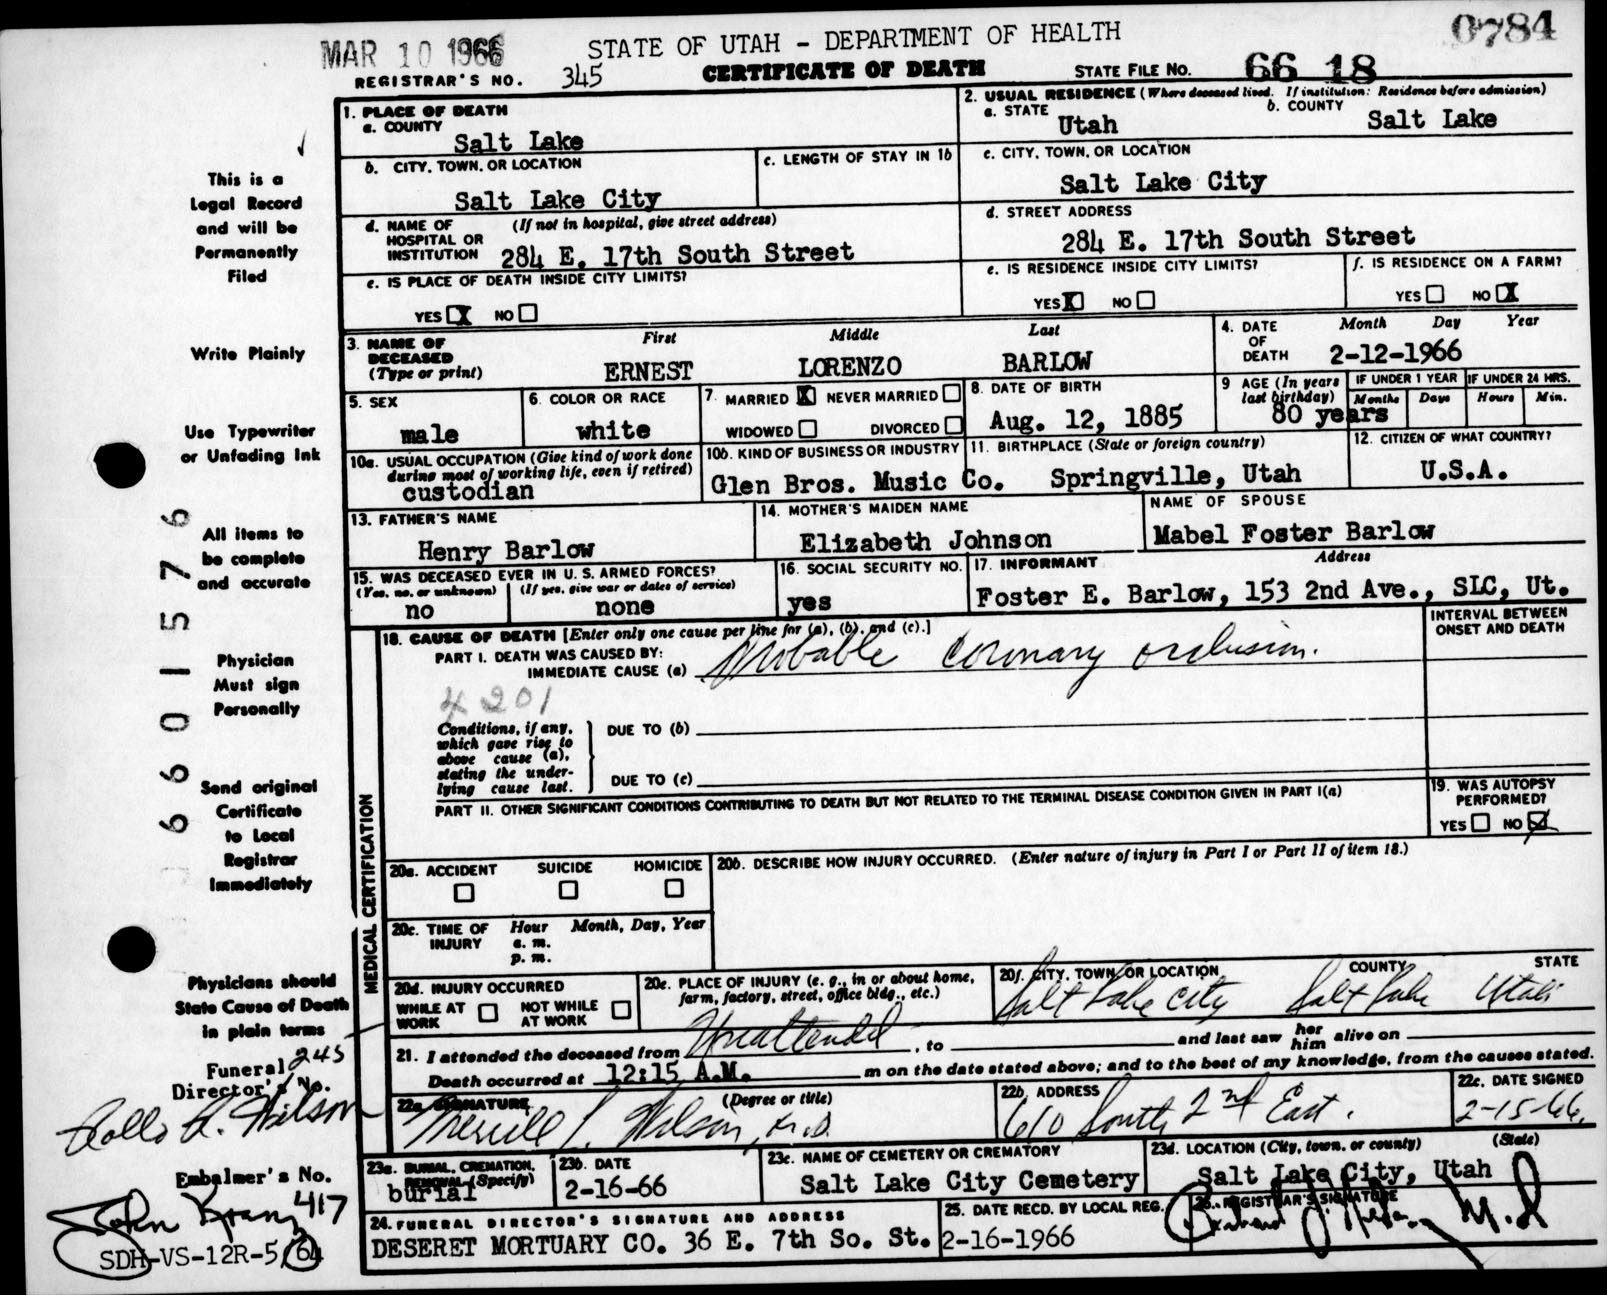 MAR 10 1966
STATE OF UTAH - DEPARTMENT OF HEALTH
0784
REGISTRAR'S NO. 345
CERTIFICATE OF DEATH
STATE FILE NO. 66 18
1. PLACE OF DEATH
a. COUNTY
Salt Lake
2. USUAL RESIDENCE (Where deceased lived. If institution: Residence before admission)
a. STATE
Utah
b. COUNTY
Salt Lake
b. CITY, TOWN, OR LOCATION
Salt Lake City
c. LENGTH OF STAY IN 1b
c. CITY, TOWN, OR LOCATION
Salt Lake City
d. NAME OF HOSPITAL OR INSTITUTION
(If not in hospital, give street address)
284 E. 17th South Street
d. STREET ADDRESS
284 E. 17th South Street
e. IS PLACE OF DEATH INSIDE CITY LIMITS?
YES X NO
e. IS RESIDENCE INSIDE CITY LIMITS?
YES X NO
f. IS RESIDENCE ON A FARM?
YES NO X
3. NAME OF DECEASED (Type or print)
First Middle Last
ERNEST LORENZO BARLOW
4. DATE OF DEATH
Month Day Year
2-12-1966
5. SEX
male
6. COLOR OR RACE
white
7. MARRIED X NEVER MARRIED
WIDOWED DIVORCED
8. DATE OF BIRTH
Aug. 12, 1885
9 AGE (In years last birthday)
80 years
IF UNDER 1 YEAR
Months Days
IF UNDER 24 HRS.
Hours Min.
10a. USUAL OCCUPATION (Give kind of work done during most of working life, even if retired)
custodian
10b. KIND OF BUSINESS OR INDUSTRY
Glen Bros. Music Co.
11. BIRTHPLACE (State or foreign country)
Springville, Utah
12. CITIZEN OF WHAT COUNTRY?
U.S.A.
13. FATHER'S NAME
Henry Barlow
14. MOTHER'S MAIDEN NAME
Elizabeth Johnson
NAME OF SPOUSE
Mabel Foster Barlow
15. WAS DECEASED EVER IN U. S. ARMED FORCES?
(Yes, no, or unknown) (If yes, give war or dates of service)
no none
16. SOCIAL SECURITY NO.
yes
17. INFORMANT Address
Foster E. Barlow, 153 2nd Ave., SLC, Ut.
MEDICAL CERTIFICATION
18. CAUSE OF DEATH [Enter only one cause per line for (a), (b), and (c).]
INTERVAL BETWEEN ONSET AND DEATH
PART I. DEATH WAS CAUSED BY:
IMMEDIATE CAUSE (a) Probable coronary occlusion.
4201
Conditions, if any, which gave rise to above cause (a), stating the underlying cause last.
DUE TO (b)
DUE TO (c)
PART II. OTHER SIGNIFICANT CONDITIONS CONTRIBUTING TO DEATH BUT NOT RELATED TO THE TERMINAL DISEASE CONDITION GIVEN IN PART I(a)
19. WAS AUTOPSY PERFORMED?
YES NO X
20a. ACCIDENT SUICIDE HOMICIDE
20b. DESCRIBE HOW INJURY OCCURRED. (Enter nature of injury in Part I or Part II of item 18.)
20c. TIME OF INJURY
Hour Month, Day, Year
a. m.
p. m.
20d. INJURY OCCURRED
WHILE AT WORK NOT WHILE AT WORK
20e. PLACE OF INJURY (e. g., in or about home, farm, factory, street, office bldg., etc.)
20f. CITY, TOWN, OR LOCATION COUNTY STATE
Salt Lake City Salt Lake Utah
21. I attended the deceased from Unattended, to and last saw her him alive on
Death occurred at 12:15 A.M. m on the date stated above; and to the best of my knowledge, from the causes stated.
22a. SIGNATURE (Degree or title)
Merrill L. Wilson, M.D.
22b. ADDRESS
610 South 2nd East.
22c. DATE SIGNED
2-15-66.
23a. BURIAL, CREMATION, REMOVAL (Specify)
burial
23b. DATE
2-16-66
23c. NAME OF CEMETERY OR CREMATORY
Salt Lake City Cemetery
23d. LOCATION (City, town, or county) (State)
Salt Lake City, Utah
24. FUNERAL DIRECTOR'S SIGNATURE AND ADDRESS
DESERET MORTUARY CO. 36 E. 7th So. St.
25. DATE RECD. BY LOCAL REG.
2-16-1966
26. REGISTRAR'S SIGNATURE
M.D
This is a
Legal Record
and will be
Permanently
Filed
Write Plainly
Use Typewriter
or Unfading Ink
All items to
be complete
and accurate
Physician
Must sign
Personally
Send original
Certificate
to Local
Registrar
Immediately
Physicians should
State Cause of Death
in plain terms
660 15 76
Funeral 245
Director's No.
Rollo R. Wilson
Embalmer's No.
John Kranz 417
SDH-VS-12R-5/64